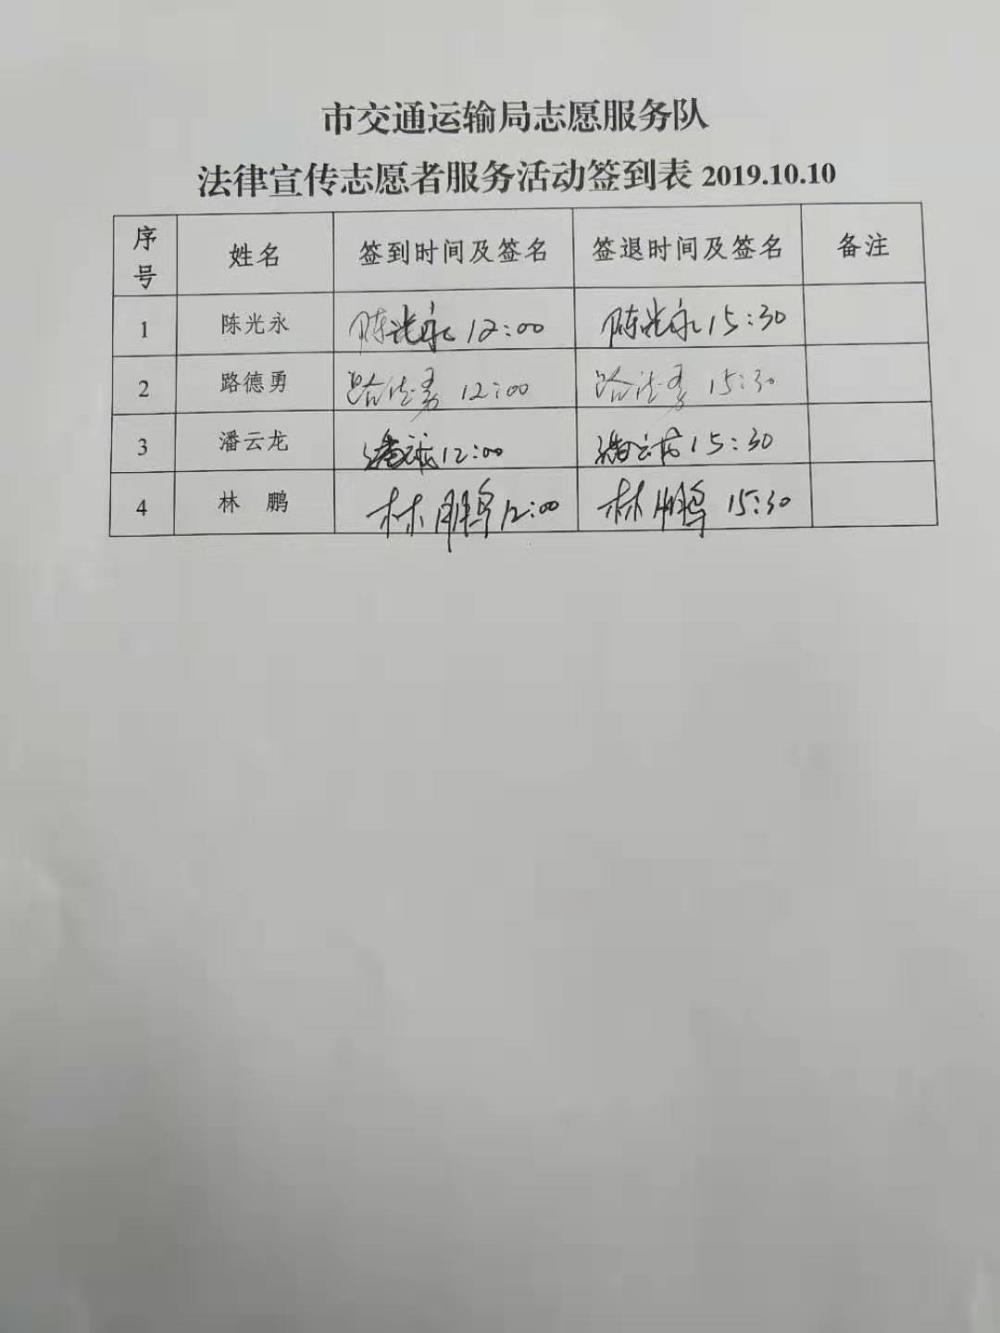 市交通运输局志愿服务队
法律宣传志愿者服务活动签到表 2019.10.10
序号 姓名 签到时间及签名 签退时间及签名 备注
1 陈光永 陈光永 12:00 陈光永 15:30
2 路德勇 路德勇 12:00 路德勇 15:30
3 潘云龙 潘云龙 12:00 潘云龙 15:30
4 林 鹏 林鹏 12:00 林鹏 15:30